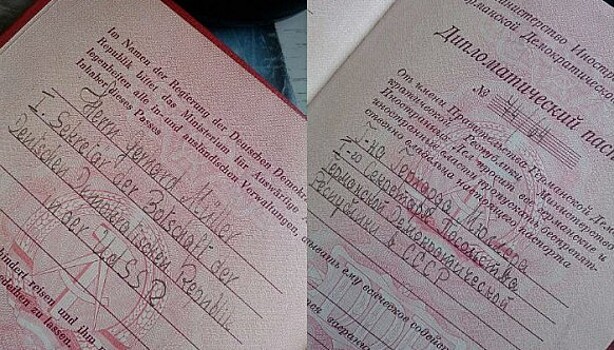 Im Namen der Regierung der Deutschen Demokra
Republik bittet das Ministerium für Auswärtige A
legenheiten alle in- und ausländischen Verwaltungen
Inhaber dieses Passes
Herrn Gerhard Müller
I. Sekretär der Botschaft der
Deutschen Demokratischen Republik
in der UdSSR
hindert reisen und ihm n
gedeihen zu lassen.
инистерство Иност
ерманской Демократическо
Дипломатический пас
№
От имени Правительства Германской Демо
кратической Республики Министерство
Иностранных Дел просит все германские и
иностранные власти пропустить беспрепят-
ственно владельца настоящего паспорта
Г-на Герхарда Мюллера
I-го Секретаря Посольства
Германской Демократической
Республики в СССР
ему всяческое содей